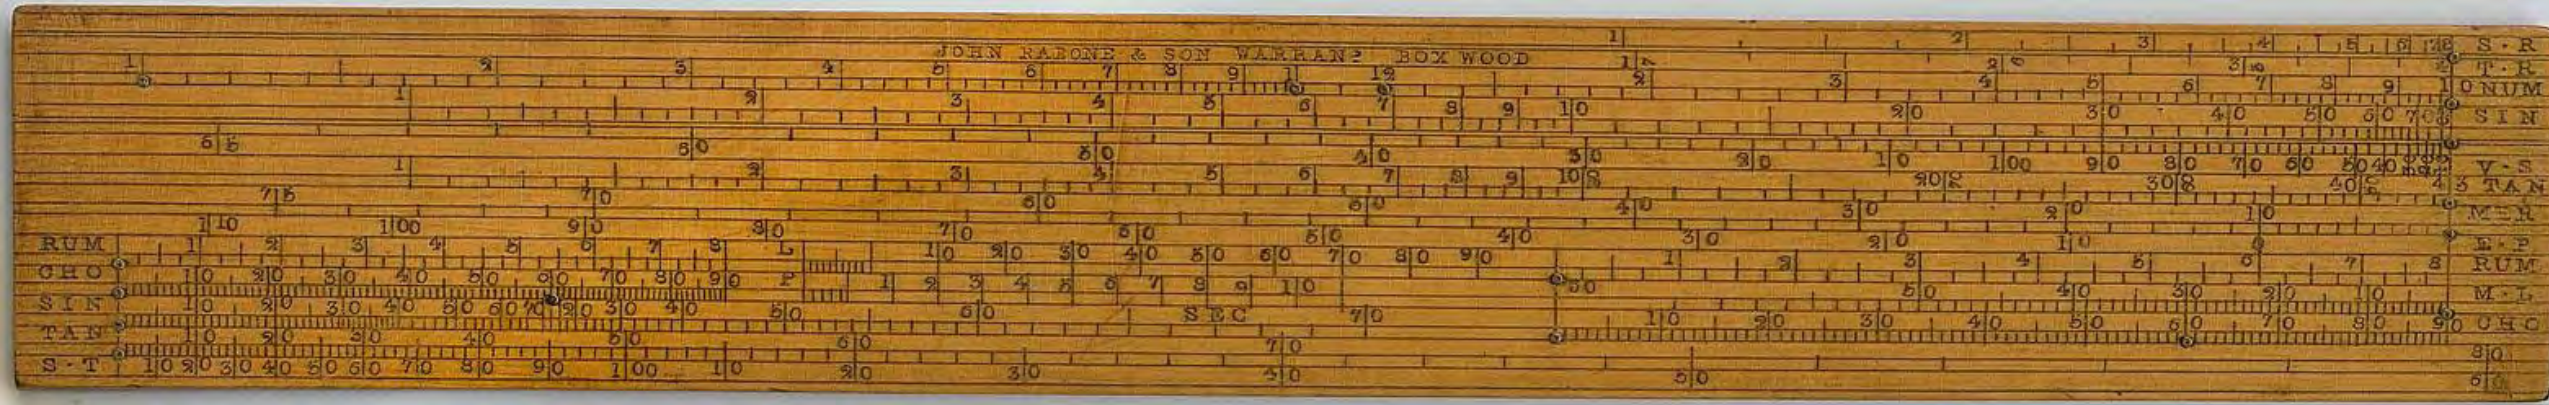 JOHN RABONE & SON WARRAN? BOX WOOD
1 2 3 4 5 6 7 8 S·R
1 2 3 T·R
1 2 3 4 5 6 7 8 9 1 12 2 3 4 5 6 7 8 9 10 NUM
1 2 3 4 5 6 7 8 9 10 20 30 40 50 60 70 SIN
60 50 40 30 20 10 100 90 80 70 60 50 40 V·S
1 2 3 4 5 6 7 8 9 10 20 30 40 TAN
75 70 60 50 40 30 20 10 MER
110 100 90 80 70 60 50 40 30 20 10 0 E·P
RUM 1 2 3 4 5 6 7 8 L 10 20 30 40 50 60 70 80 90 1 2 3 4 5 6 7 8 RUM
CHO 10 20 30 40 50 60 70 80 90 P 1 2 3 4 5 6 7 8 9 10 50 40 30 20 10 M·L
SIN 10 20 30 40 50 60 70 20 30 40 50 60 SEC 70 10 20 30 40 50 60 70 80 90 CHO
TAN 10 20 30 40 50 60 70 80
S·T 10 20 30 40 50 60 70 80 90 100 10 20 30 40 50